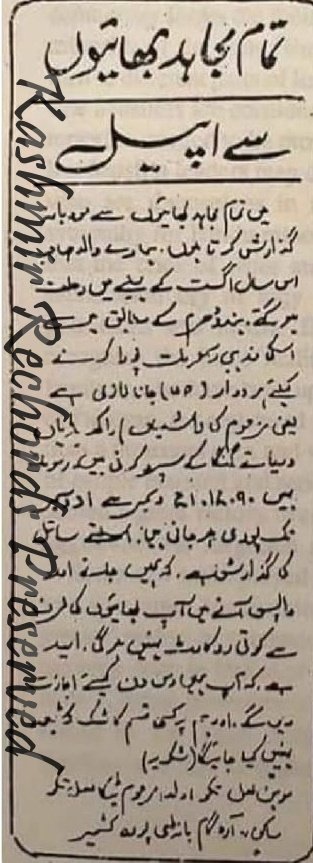 تمام مجاہد بھائیوں
سے اپیل
میں تمام مجاہد بھائیوں سے مودبانہ
گذارش کرتا ہوں۔ ہمارے والد صاحب
اس سال اگست کے مہینے میں رحلت
کر گئے۔ ہندو دھرم کے مطابق ہمیں
اسکا مذہبی رسومات پورا کرنے
کیلئے ہردوار جانا لازمی ہے
یعنی مرحوم کا راکھ ہڈیاں
دریائے گنگا کے سپرد کرنی ہیں
ہیں 21.12.90 دسمبر سے
تک پوری ہو جانی چاہئے اسلئے سائل
کا گذارش ہے۔ کہ ہمیں جانے اور
واپس آنے میں آپ بھائیوں کا طرف
سے کوئی رکاوٹ نہیں ہوگی۔ امید
ہے کہ آپ ہمیں دس دن کیلئے اجازت
دیں گے۔ اور ہم پر کسی قسم کا شک و شبہ
نہیں کیا جائیگا (شکریہ)
موہن لعل ولد مرحوم
ساکن کشمیر
Kashmir Rechords Preserved